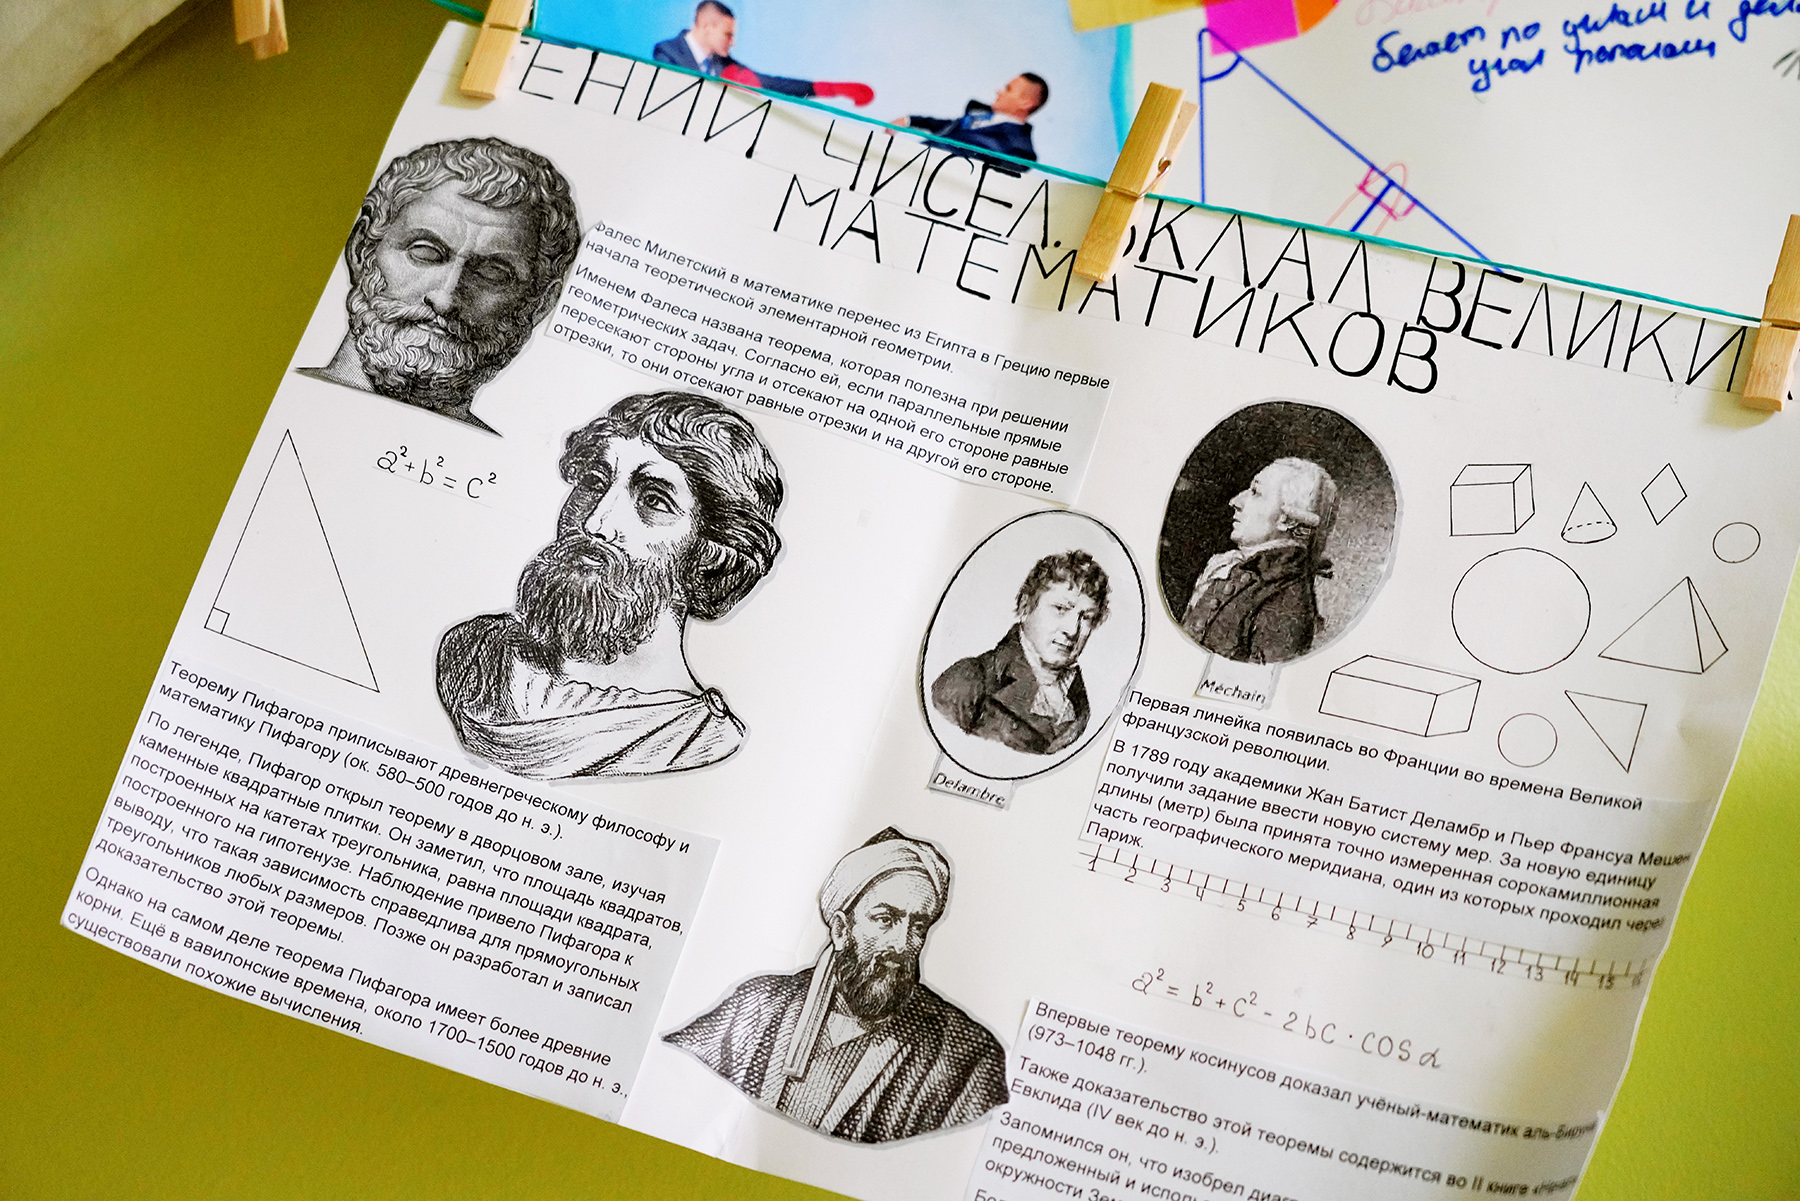 бегает по углам и дел
угол пополам
ЕНИИ ЧИСЕЛ. ВКЛАД ВЕЛИКИ
МАТЕМАТИКОВ
Фалес Милетский в математике перенес из Египта в Грецию первые
начала теоретической элементарной геометрии.
Именем Фалеса названа теорема, которая полезна при решении
геометрических задач. Согласно ей, если параллельные прямые
пересекают стороны угла и отсекают на одной его стороне равные
отрезки, то они отсекают равные отрезки и на другой его стороне.
a²+b²=c²
Теорему Пифагора приписывают древнегреческому философу и
математику Пифагору (ок. 580–500 годов до н. э.).
По легенде, Пифагор открыл теорему в дворцовом зале, изучая
каменные квадратные плитки. Он заметил, что площадь квадратов,
построенных на катетах треугольника, равна площади квадрата,
построенного на гипотенузе. Наблюдение привело Пифагора к
выводу, что такая зависимость справедлива для прямоугольных
треугольников любых размеров. Позже он разработал и записал
доказательство этой теоремы.
Однако на самом деле теорема Пифагора имеет более древние
корни. Ещё в вавилонские времена, около 1700–1500 годов до н. э.,
существовали похожие вычисления.
Méchain
Delambre
Первая линейка появилась во Франции во времена Великой
французской революции.
В 1789 году академики Жан Батист Деламбр и Пьер Франсуа Мешен
получили задание ввести новую систему мер. За новую единицу
длины (метр) была принята точно измеренная сорокамиллионная
часть географического меридиана, один из которых проходил через
Париж.
1 2 3 4 5 6 7 8 9 10 11 12 13 14 15 16
a² = b² + c² - 2bc · cos α
Впервые теорему косинусов доказал учёный-математик аль-Бируни
(973–1048 гг.).
Также доказательство этой теоремы содержится во II книге
Евклида (IV век до н. э.).
Запомнился он, что изобрел
предложенный и
окружности